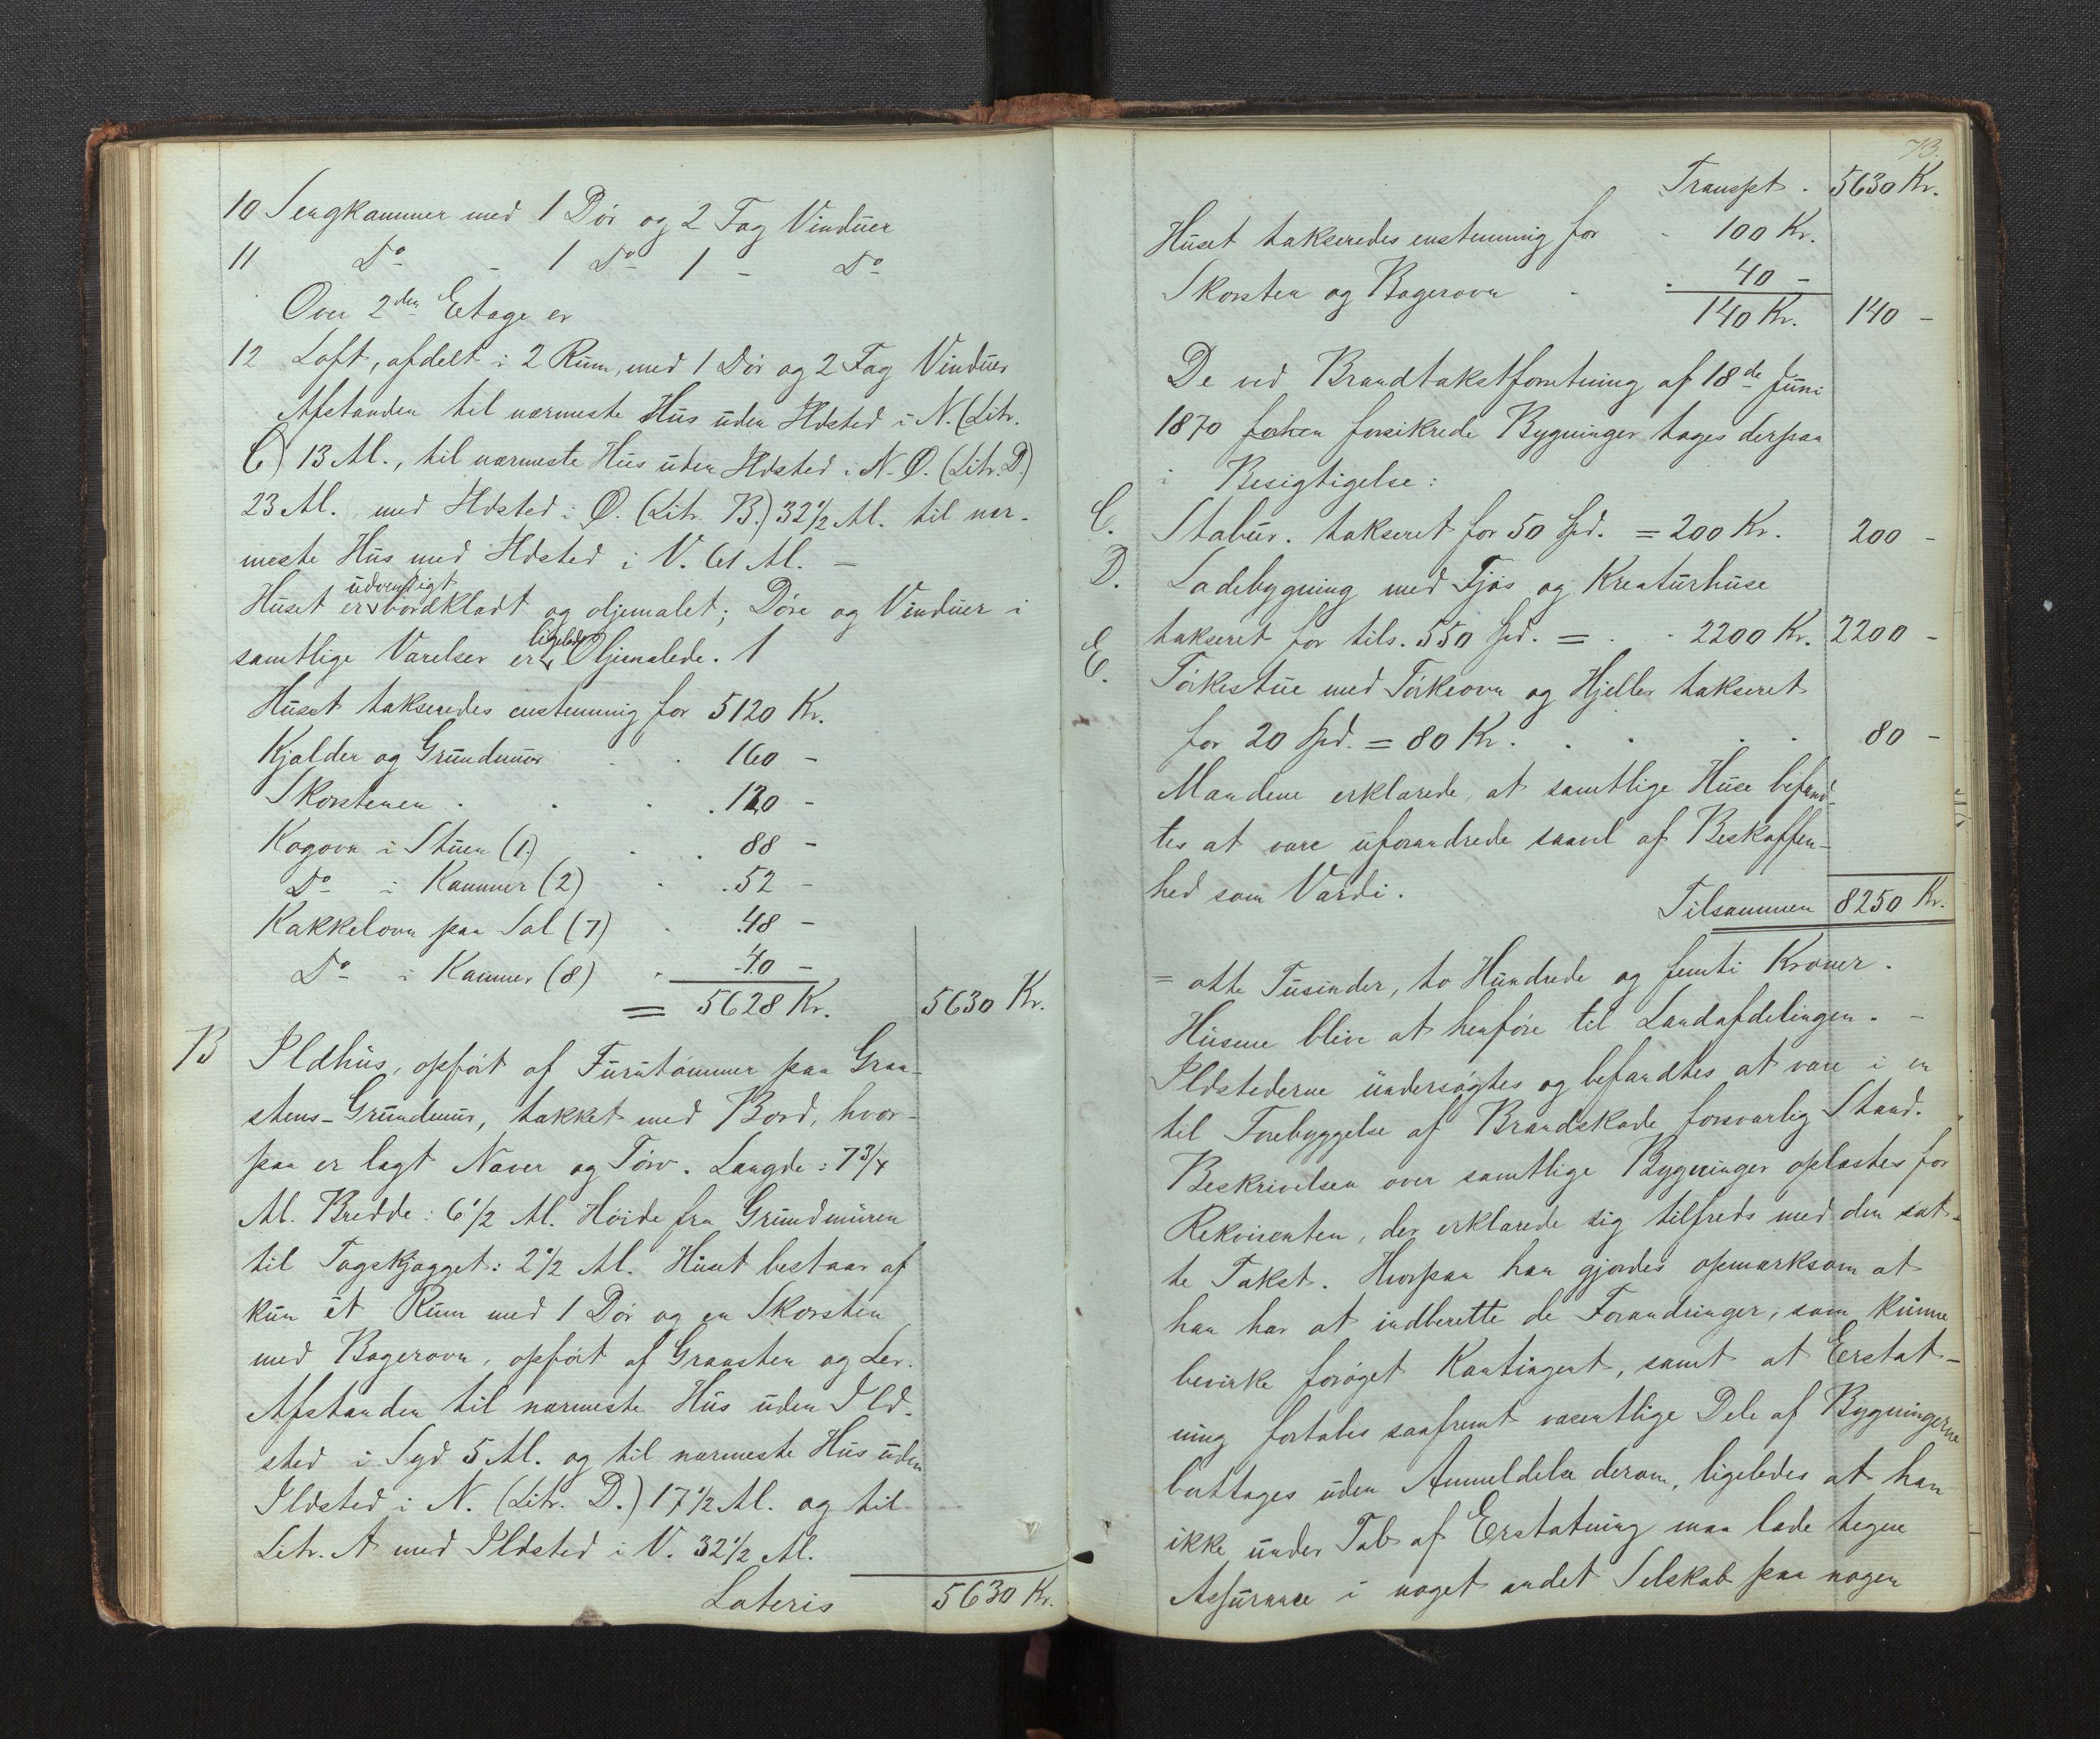 10 Sengkammer med 1 Dør og 2 Fag Vinduer
11 Do - 1 Do 1 - Do
Over 2den Etage er
12 Loft, afdelt i 2 Rum, med 1 Dør og 2 Fag Vinduer
Afstanden til nærmeste Hus uden Ildsted i N. (Litr.
C) 13 Al., til nærmeste Hus uden Ildsted i N.Ø. (Litr. D.)
23 Al. med Ildsted i Ø. (Litr. B.) 32 1/2 Al. til nær-
meste Hus med Ildsted i V. 61 Al. -
Huset er udvendigt bordklædt og oljemalet; Døre og Vinduer i
samtlige Værelser er ligeledes Oljemalede. 1
Huset takseredes enstemmig for 5120 Kr.
Kjælder og Grundmur . . 160 -
Skorstenen . . . 120 -
Kogovn i Stuen (1.) . . 88 -
Do i Kammer (2) . . 52 -
Kakkelovn paa Sal (7) . 48 -
Do i Kammer (8) . 40 -
= 5628 Kr. 5630 Kr.
B Ildhus, opført af Furutømmer paa Graa-
stens-Grundmur, takket med Bord, hvor-
paa er lagt Næver og Tørv. Længde: 7 3/4
Al. Bredde: 6 1/2 Al. Høide fra Grundmuren
til Tagskjægget: 2 1/2 Al. Huset bestaar af
kun ét Rum med 1 Dør og en Skorsten
med Bagerovn, opført af Graasten og Ler.
Afstanden til nærmeste Hus uden Ild-
sted i Syd 5 Al. og til nærmeste Hus uden
Ildsted i N. (Litr. D.) 17 1/2 Al. og til
Litr. A med Ildsted i V. 32 1/2 Al.
Lateris 5630 Kr.
73.
Transpt. 5630 Kr.
Huset takseredes enstemmig for - 100 Kr.
Skorsten og Bagerovn - . 40 -
140 Kr. 140 -
De ved Brandtakstforretning af 18de Juni
1870 forhen forsikrede Bygninger tages derpaa
i Besigtigelse:
C. Stabur. takseret for 50 Spd. = 200 Kr. 200 -
D. Ladebygning med Fjøs og Kreaturhuse
takseret for tils. 550 Spd. = . . 2200 Kr. 2200 -
E. Tørkestue med Tørkeovn og Hjeller takseret
for 20 Spd. = 80 Kr. . . . . 80 -
Mændene erklærede, at samtlige Huse befand-
tes at være uforandrede saavel af Beskaffen-
hed som Værdi.
Tilsammen 8250 Kr.
= otte Tusinder, to Hundrede og femti Kroner.
Husene blive at henføre til Landafdelingen. -
Ildstederne undersøgtes og befandtes at være i en
til Forebyggelse af Brandskade forsvarlig Stand.
Beskrivelsen over samtlige Bygninger oplæstes for
Rekvirenten, der erklærede sig tilfreds med den sat-
te Takst. Hvorpaa han gjordes opmærksom at
han har at indberette de Forandringer, som kunne
bevirke forøget Kontingent, samt at Erstat-
ning fortabes saafremt væsentlige Dele af Bygningerne
borttages uden Anmeldelse derom, ligeledes at han
ikke under Tab af Erstatning maa lade tegne
Assurance i noget andet Selskab paa nogen